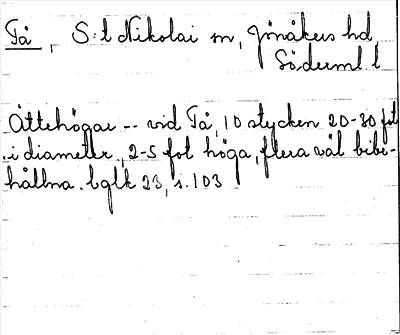 Tå, S:t Nikolai sn, Jönåkers hd
Söderml l
Ättehögar -- vid Tå, 10 stycken 20-30 fot
i diameter, 2-5 fot höga, flera väl bibe-
hållna. bglk 23, s. 103